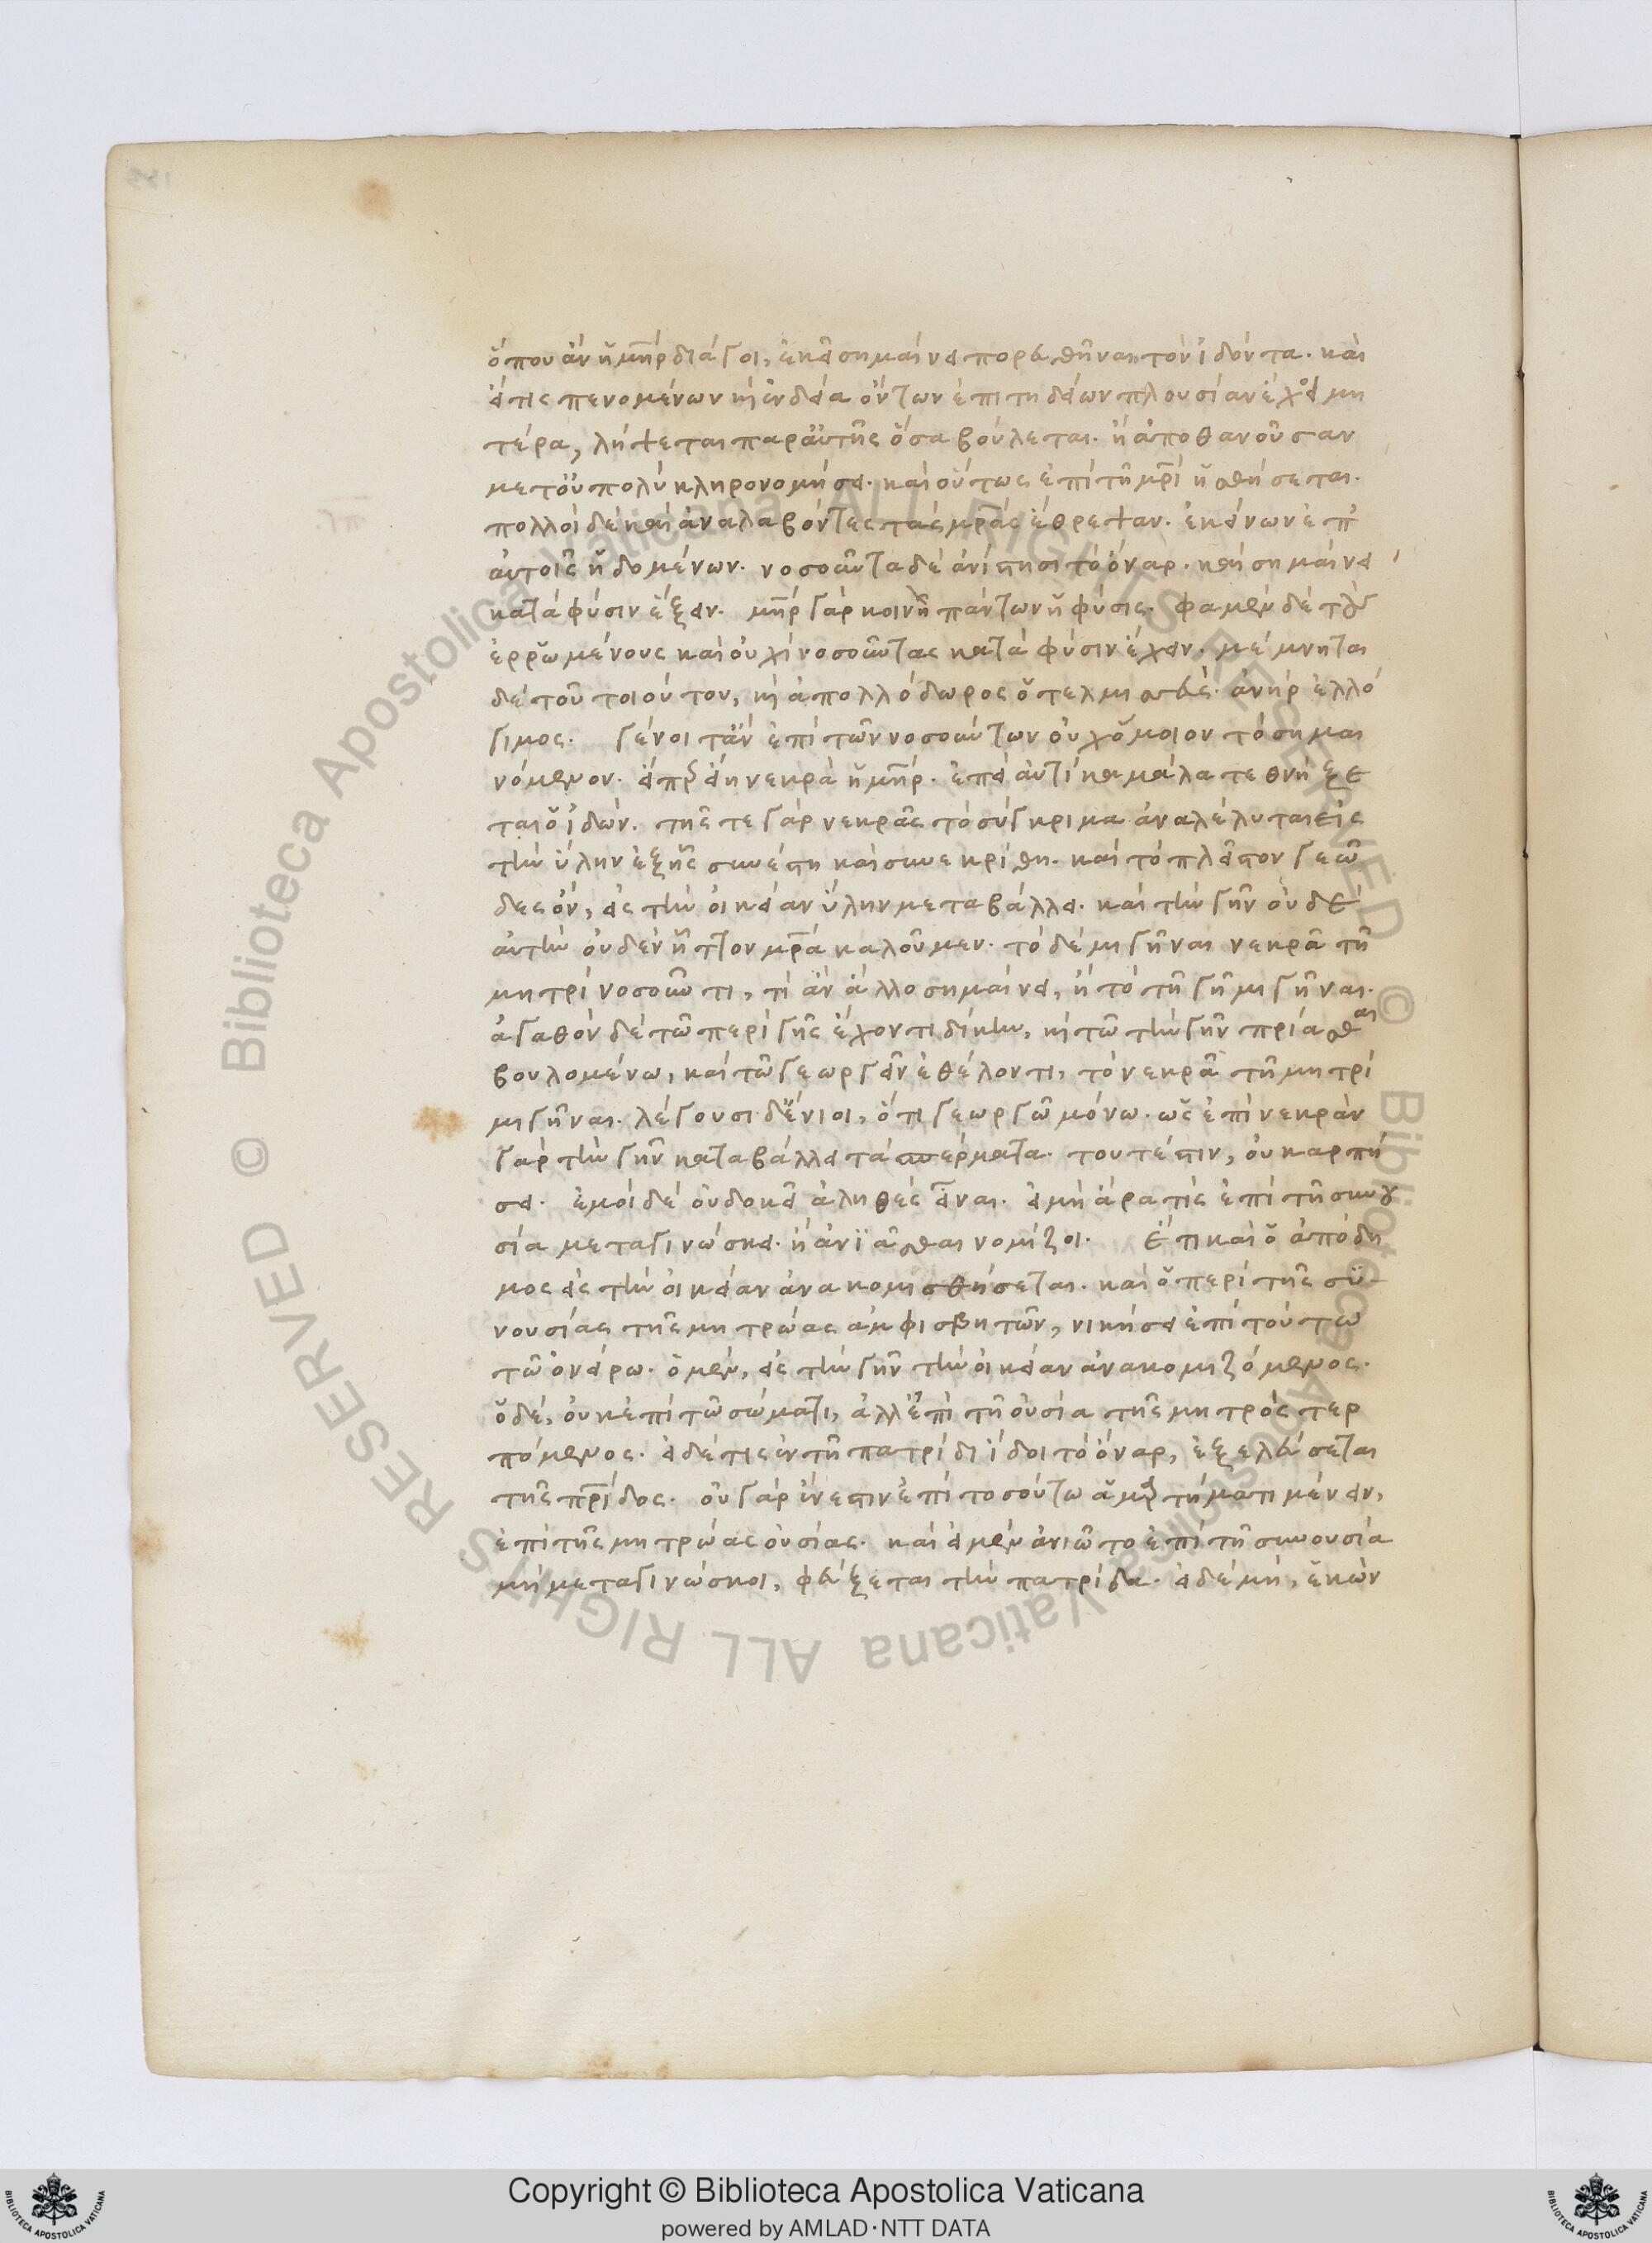 ὅπου ἂν ἡ μηρ διάγοι, ἐκεῖ σημαίνει πορευθῆναι τὸν ἰδόντα. καὶ
εἴ τις πενομένων καὶ ἐνδεᾶ ὄντων ἐπιτηδείων πλουσίαν ἔχοι μη
τέρα, λήψεται παρ' αὐτῆς ὅσα βούλεται. ἢ ἀποθανοῦσαν
μετ' οὐ πολὺ κληρονομήσει. καὶ οὕτως ἐπὶ τῆ μρὶ ἡσθήσεται.
πολλοὶ δὲ καὶ ἀναλαβόντες τὰς μρας ἔθρεψαν. ἐκείνων ἐπ'
αὐτοῖς ἡδομένων. νοσοῦντα δὲ ἀνίστησι τὸ ὄναρ. καὶ σημαίνει
κατὰ φύσιν ἕξειν. μηρ γὰρ κοινὴ πάντων ἡ φύσις. φαμὲν δὲ τοὺς
ἐρρωμένους καὶ οὐχὶ νοσοῦντας κατὰ φύσιν ἔχειν. μέμνηται
δὲ τοῦ τοιούτου, καὶ ἀπολλόδωρος ὁ τελμησεὺς. ἀνὴρ ἐλλό
γιμος. γένοιτ' ἂν ἐπὶ τῶν νοσούντων οὐχ ὅμοιον τὸ σημαι
νόμενον. εἴπερ εἴη νεκρὰ ἡ μηρ. ἐπεὶ αὐτίκα μάλα τεθνήξε
ται ὁ ἰδών. τῆς τε γὰρ νεκρᾶς τὸ σύγκριμα ἀναλέλυται εἰς
τὴν ὕλην ἐξ ἧς συνέστη καὶ συνεκρίθη. καὶ τὸ πλεῖστον γεῶ
δες ὂν, εἰς τὴν οἰκείαν ὕλην μεταβάλλει. καὶ τὴν γῆν οὐδὲ
αὐτὴν οὐδὲν ἧττον μρα καλοῦμεν. τὸ δὲ μιγῆναι νεκρᾶ τῆ
μητρὶ νοσοῦντι, τί ἂν ἄλλο σημαίνει, ἢ τὸ τῆ γῆ μιγῆναι.
ἀγαθὸν δὲ τῶ περὶ γῆς ἔχοντι δίκην, καὶ τῶ τὴν γῆν πρίασθαι
βουλομένω, καὶ τῶ γεωργεῖν ἐθέλοντι, τὸ νεκρᾶ τῆ μητρὶ
μιγῆναι. λέγουσι δ' ἔνιοι, ὅτι γεωργῶ μόνω. ὡς ἐπὶ νεκρὰν
γὰρ τὴν γῆν καταβάλλει τὰ σπέρματα. τουτέστιν, οὐ καρπή
σει. ἐμοὶ δὲ οὐ δοκεῖ ἀληθὲς εἶναι. εἰ μὴ ἄρα τις ἐπὶ τῆ συνου
σία μεταγινώσκει. ἢ ἀνιᾶσθαι νομίζοι. ἔτι καὶ ὁ ἀπόδη
μος εἰς τὴν οἰκείαν ἀνακομισθήσεται. καὶ ὁ περὶ τῆς συ-
νουσίας τῆς μητρώας ἀμφισβητῶν, νικήσει ἐπὶ τούτω
τῶ ὀνείρω. ὁ μὲν, εἰς τὴν γῆν τὴν οἰκείαν ἀνακομιζόμενος.
ὁ δὲ, οὐκ ἐπὶ τῶ σώματι, ἀλλ' ἐπὶ τῆ οὐσία τῆς μητρὸς τερ
πόμενος. εἰ δέ τις ἐν τῆ πατρίδι ἴδοι τὸ ὄναρ, ἐξελεύσεται
τῆς πρίδος. οὐ γὰρ ἔνεστιν ἐπὶ τοσούτω ἁμαρτήματι μένειν,
ἐπὶ τῆς μητρώας οὐσίας. καὶ εἰ μὲν ἀνιῶτο ἐπὶ τῆ συνουσία
μὴ μεταγινώσκοι, φεύξεται τὴν πατρίδα. εἰ δὲ μὴ, ἑκὼν
Copyright © Biblioteca Apostolica Vaticana
powered by AMLAD·NTT DATA
BIBLIOTECA APOSTOLICA VATICANA
BIBLIOTECA APOSTOLICA VATICANA
© Biblioteca Apostolica Vaticana ALL RIGHTS RESERVED © Biblioteca Apostolica Vaticana ALL RIGHTS RESERVED